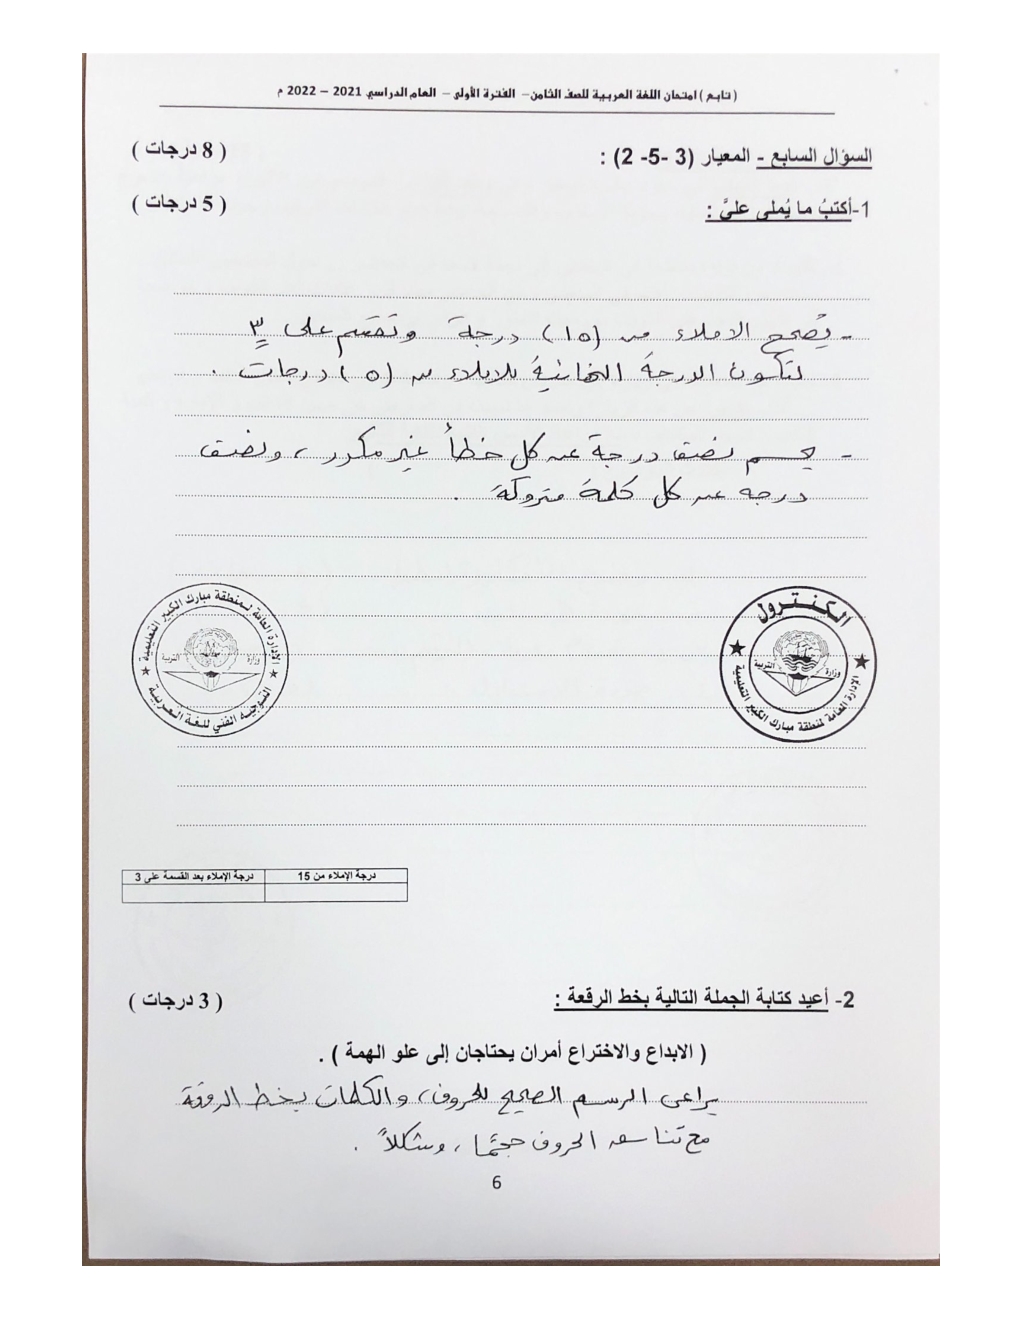 ( تابع ) امتحان اللغة العربية للصف الثامن – الفترة الأولى – العام الدراسي 2021 – 2022 م
السؤال السابع - المعيار (3 -5- 2) :
( 8 درجات )
1-أكتبُ ما يُملى عليَّ :
( 5 درجات )
- يُصحح الاملاء من (١٥) درجة وتقسم على ٣
لتكون الدرجة النهائية للاملاء من (٥) درجات .
- يحسم نصف درجة عن كل خطأ غير مكرر ، ونصف
درجة عن كل كلمة متروكة .
الكنترول
وزارة التربية
الإدارة العامة لمنطقة مبارك الكبير التعليمية
الإدارة العامة لمنطقة مبارك الكبير التعليمية
وزارة التربية
التوجيه الفني للغة العربية
درجة الإملاء من 15
درجة الإملاء بعد القسمة على 3
2- أعيد كتابة الجملة التالية بخط الرقعة :
( 3 درجات )
( الابداع والاختراع أمران يحتاجان إلى علو الهمة ) .
يراعى الرسم الصحيح للحروف، والكلمات بخط الرقعة
مع تناسق الحروف حجمًا ، وشكلاً .
6